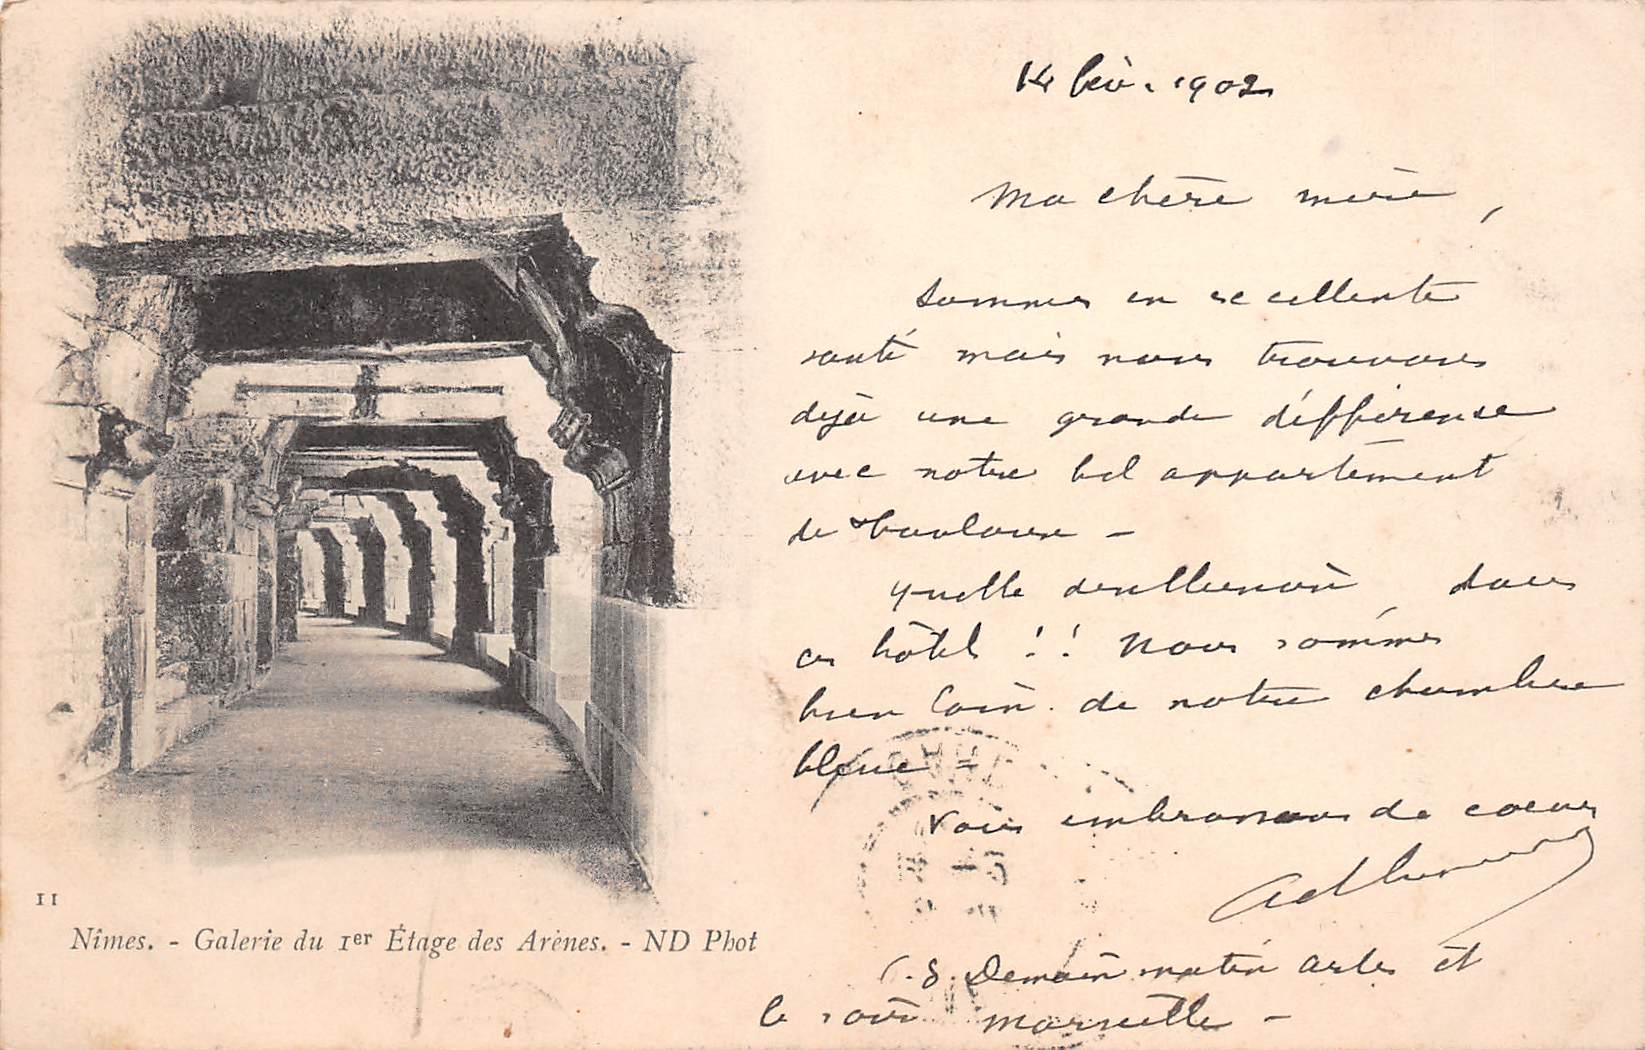 14 fév. 1902
Ma chère mère,
Sommes en excellente
santé mais nous trouvons
déjà une grande différense
avec notre bel appartement
de Toulouse -
quelle desillusion, dans
ces hôtel !! Nous sommes
bien loin de notre chambre
bleue -
Vous embrassons de coeur
P.S. Demain matin Arles et
le soir Marseille -
11
Nîmes. - Galerie du 1er Étage des Arènes. - ND Phot